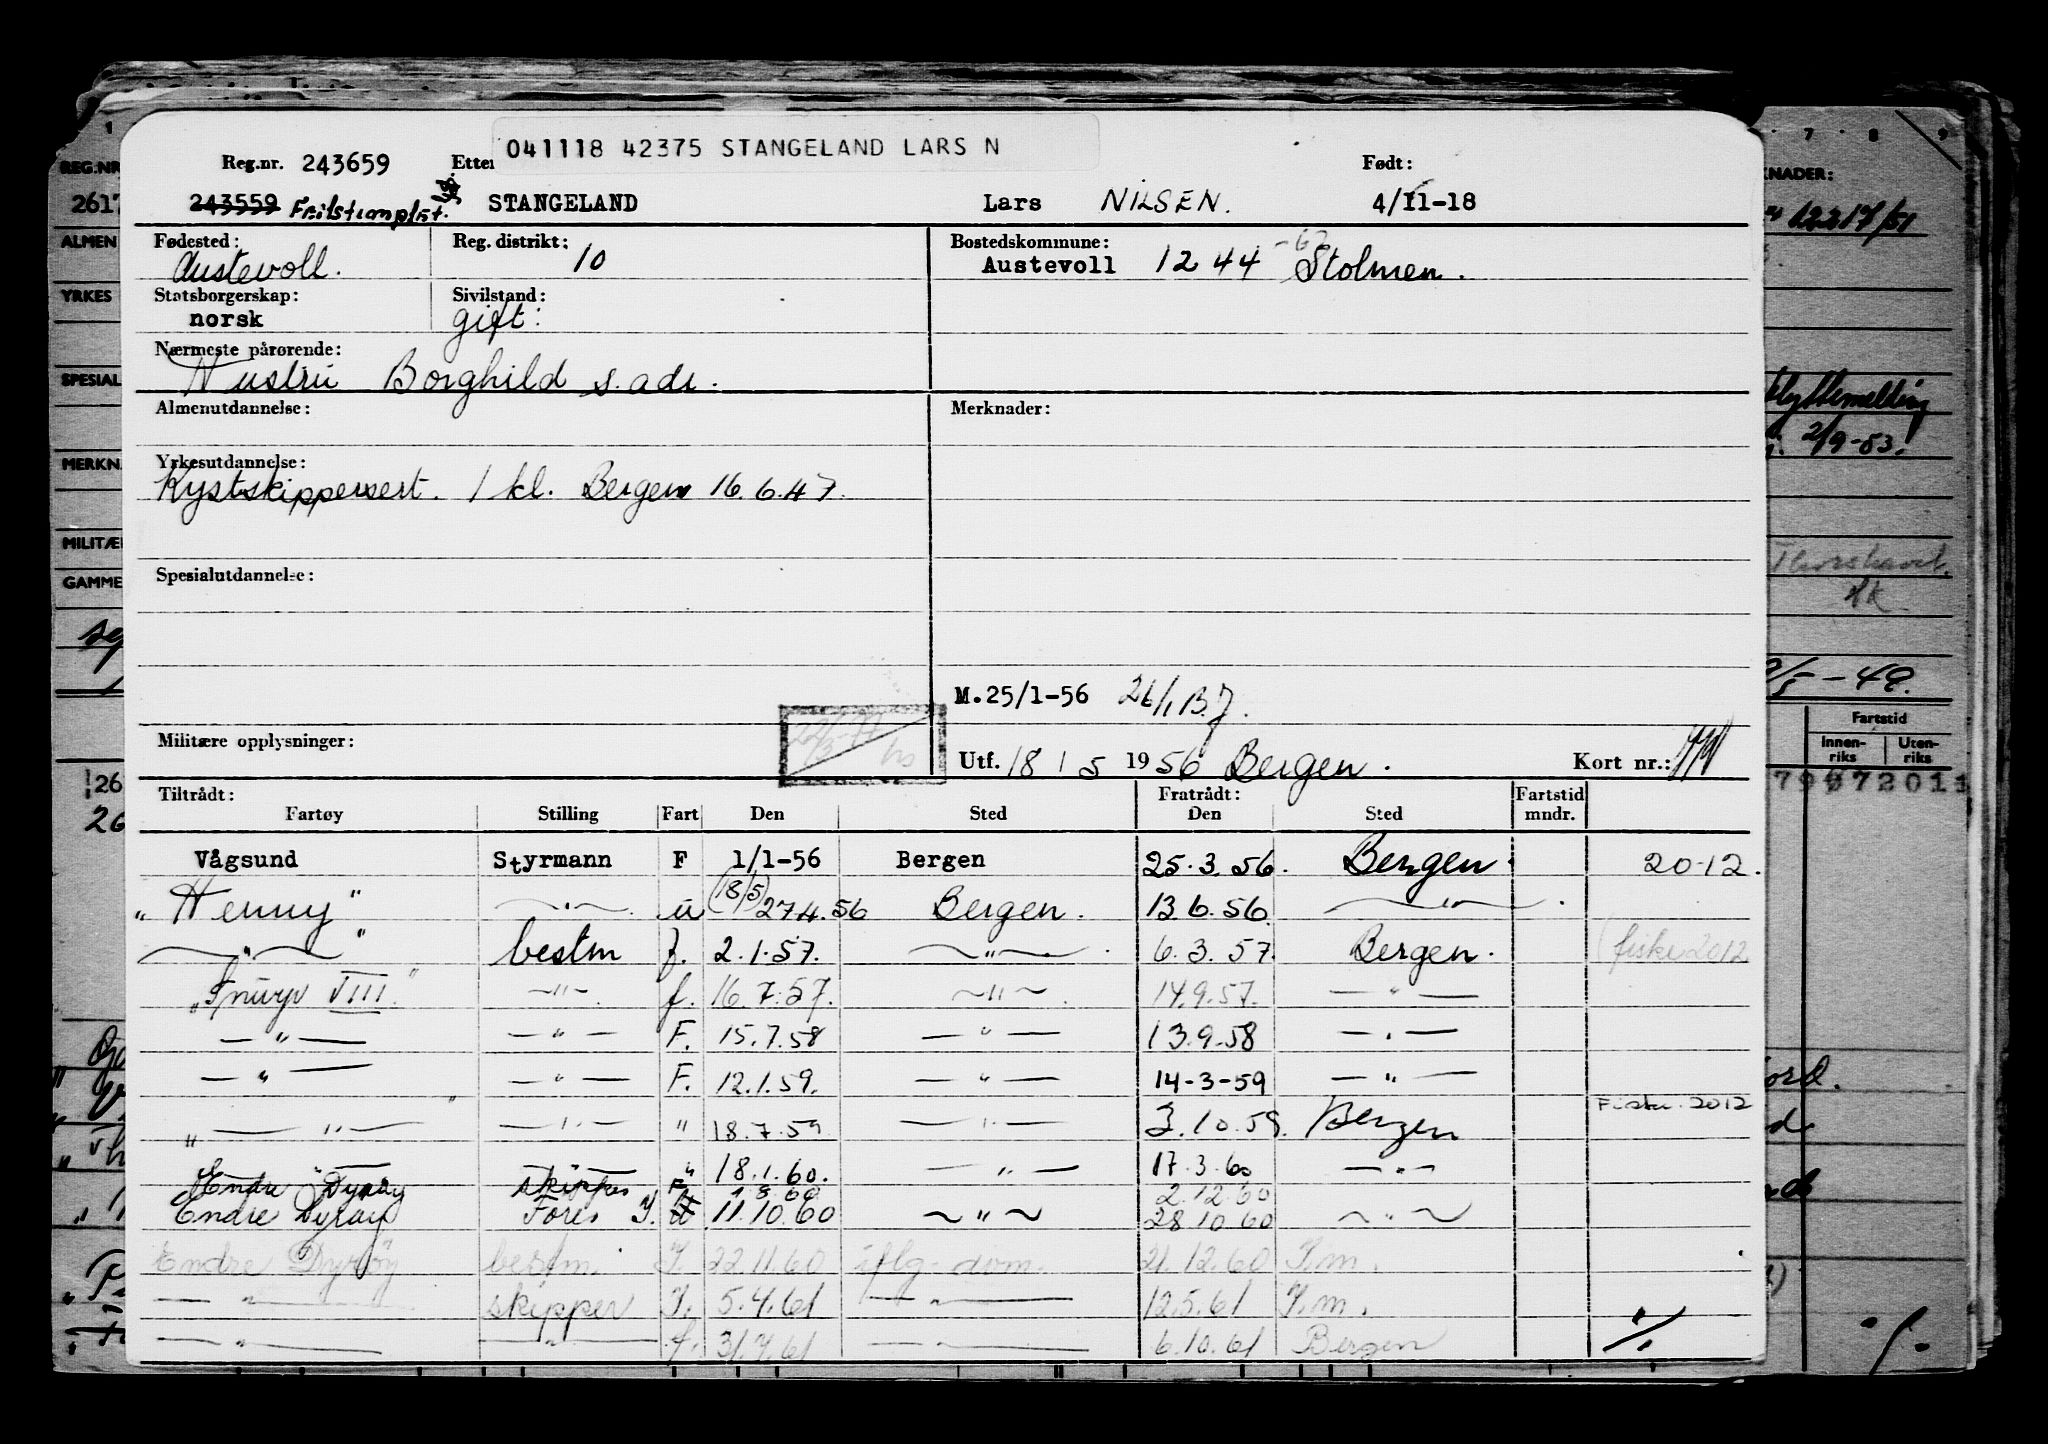 041118 42375 STANGELAND LARS N
Reg.nr. 243659 Etter Født:
243559 Feilstemplet. STANGELAND Lars NILSEN. 4/11-18
Fødested: Reg. distrikt: Bostedskommune:
Austevoll. 10 Austevoll 1244 Stolmen.
Statsborgerskap: Sivilstand:
norsk gift.
Nærmeste pårørende:
Hustru Borghild s. adr.
Almenutdannelse: Merknader:
Yrkesutdannelse:
Kystskippersert. 1 kl. Bergen 16.6.47.
Spesialutdannelse:
M.25/1-56 26/1 B.J.
Militære opplysninger: Utf. 18 / 5 1956 Bergen. Kort nr.:
Tiltrådt: Fratrådt: Fartstid
Fartøy Stilling Fart Den Sted Den Sted mndr.
Vågsund Styrmann F 1/1-56 Bergen 25.3.56. Bergen. 20-12.
"Henny" —"— u (18/5) 27.4.56 Bergen. 13.6.56 —"—
—"—" bestm f. 2.1.57. —"— 6.3.57. Bergen. (fiske 2012
VIII" —"— f. 16.7.57. —"— 14.9.57. —"—
—"— —"— F. 15.7.58 —"— 13.9.58 —"—
—"— —"— F. 12.1.59. —"— 14-3-59 —"—
"—"—" —"— " 18.7.59 —"— 3.10.59. Bergen Fiske. 2012
—"— —"— " 18.1.60. —"— 17.3.60 —"—
Endre Dyrøy skipper F 1.8.60 2.12.60
Endre Dyrøy Føres J. 11.10.60 —"— 28.10.60 —"—
Endre Dyrøy bestm. 22.11.60 iflg. dom. 21.12.60
—"— skipper 5.4.61 —"— 12.5.61
—"— —"— f. 31.7.61 —"— 6.10.61 Bergen
REG.NR
2617
ALMEN
YRKES
SPESIAL
MERKN
MILITÆ
GAMME
7 8 9
KNADER:
12217/51
Flyttemelding
2/9-53.
Thorshavet.
Fartstid
Innen-riks Uten-riks